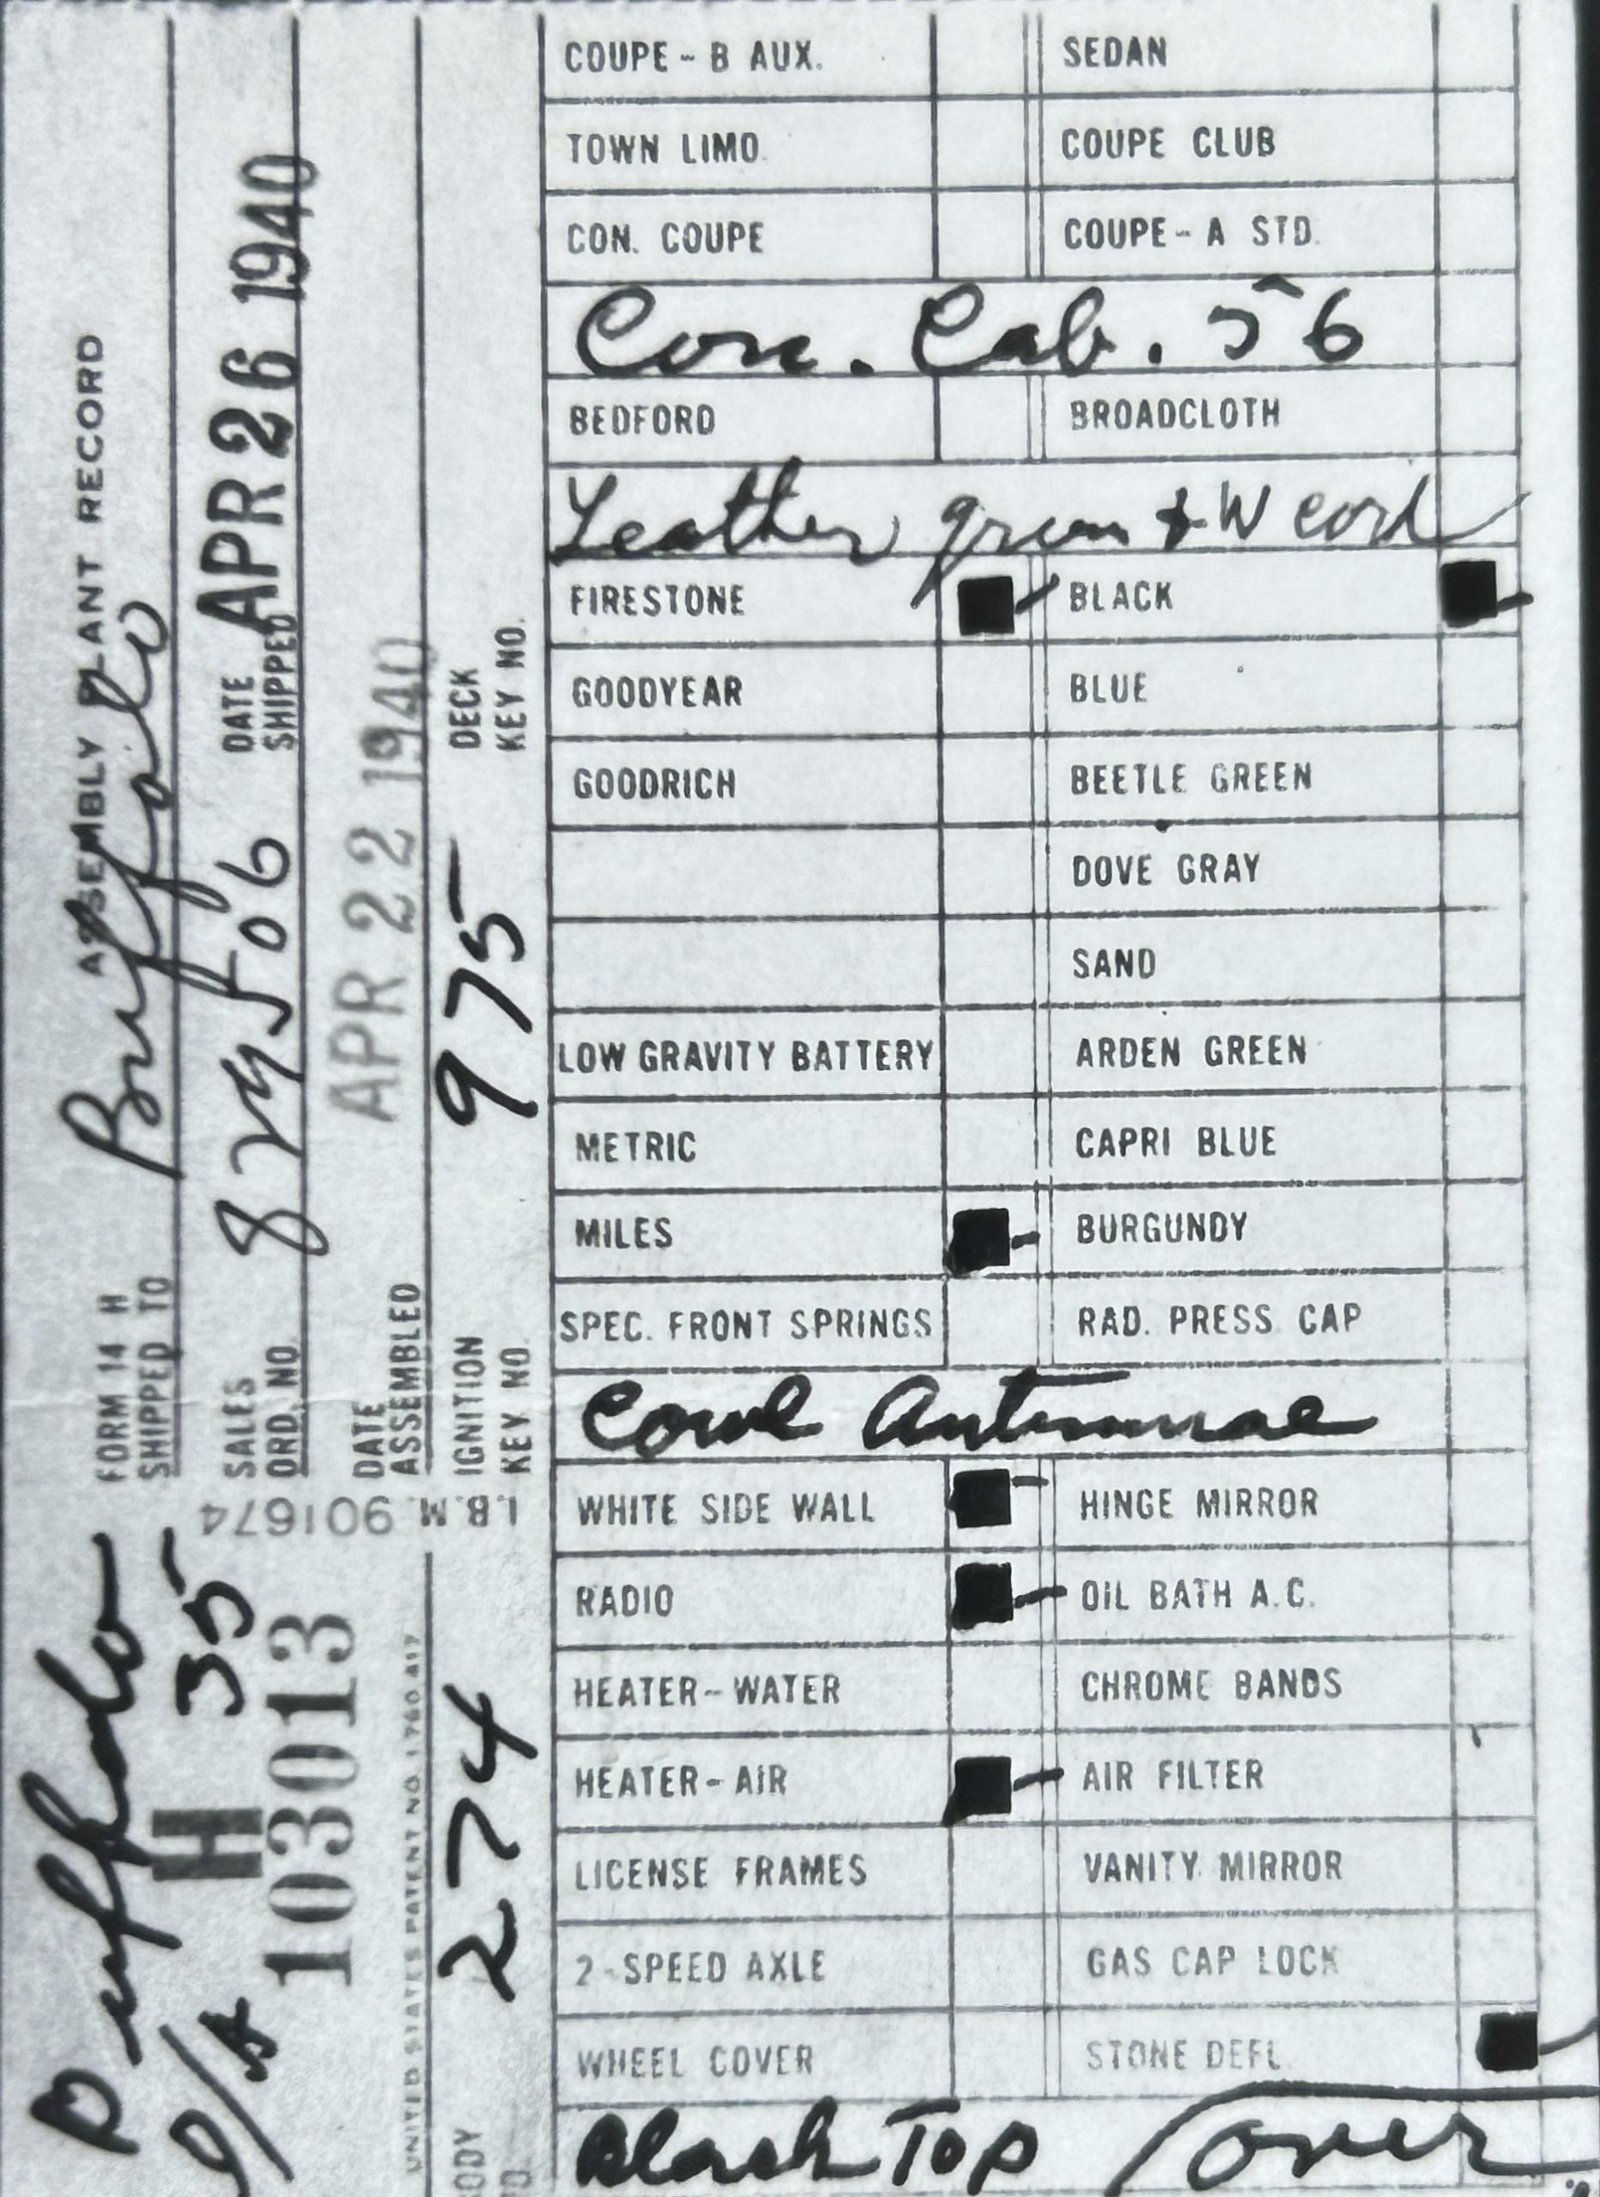 ASSEMBLY PLANT RECORD
FORM 14 H
SHIPPED TO Buffalo
SALES ORD. NO.
DATE SHIPPED APR 26 1940
DATE ASSEMBLED APR 22 1940
IGNITION KEY NO. 975
DECK KEY NO.
I.B.M. 901674
Buffalo
H 35
103013
UNITED STATES PATENT NO. 1 760 417
274
COUPE - B AUX. SEDAN
TOWN LIMO. COUPE CLUB
CON. COUPE COUPE - A STD.
Con. Cab. 56
BEDFORD BROADCLOTH
Leather green & W cord
FIRESTONE BLACK
GOODYEAR BLUE
GOODRICH BEETLE GREEN
DOVE GRAY
SAND
LOW GRAVITY BATTERY ARDEN GREEN
METRIC CAPRI BLUE
MILES BURGUNDY
SPEC. FRONT SPRINGS RAD. PRESS. CAP
Cowl Antennae
WHITE SIDE WALL HINGE MIRROR
RADIO OIL BATH A.C.
HEATER - WATER CHROME BANDS
HEATER - AIR AIR FILTER
LICENSE FRAMES VANITY MIRROR
2 - SPEED AXLE GAS CAP LOCK
WHEEL COVER STONE DEFL.
Black Top over